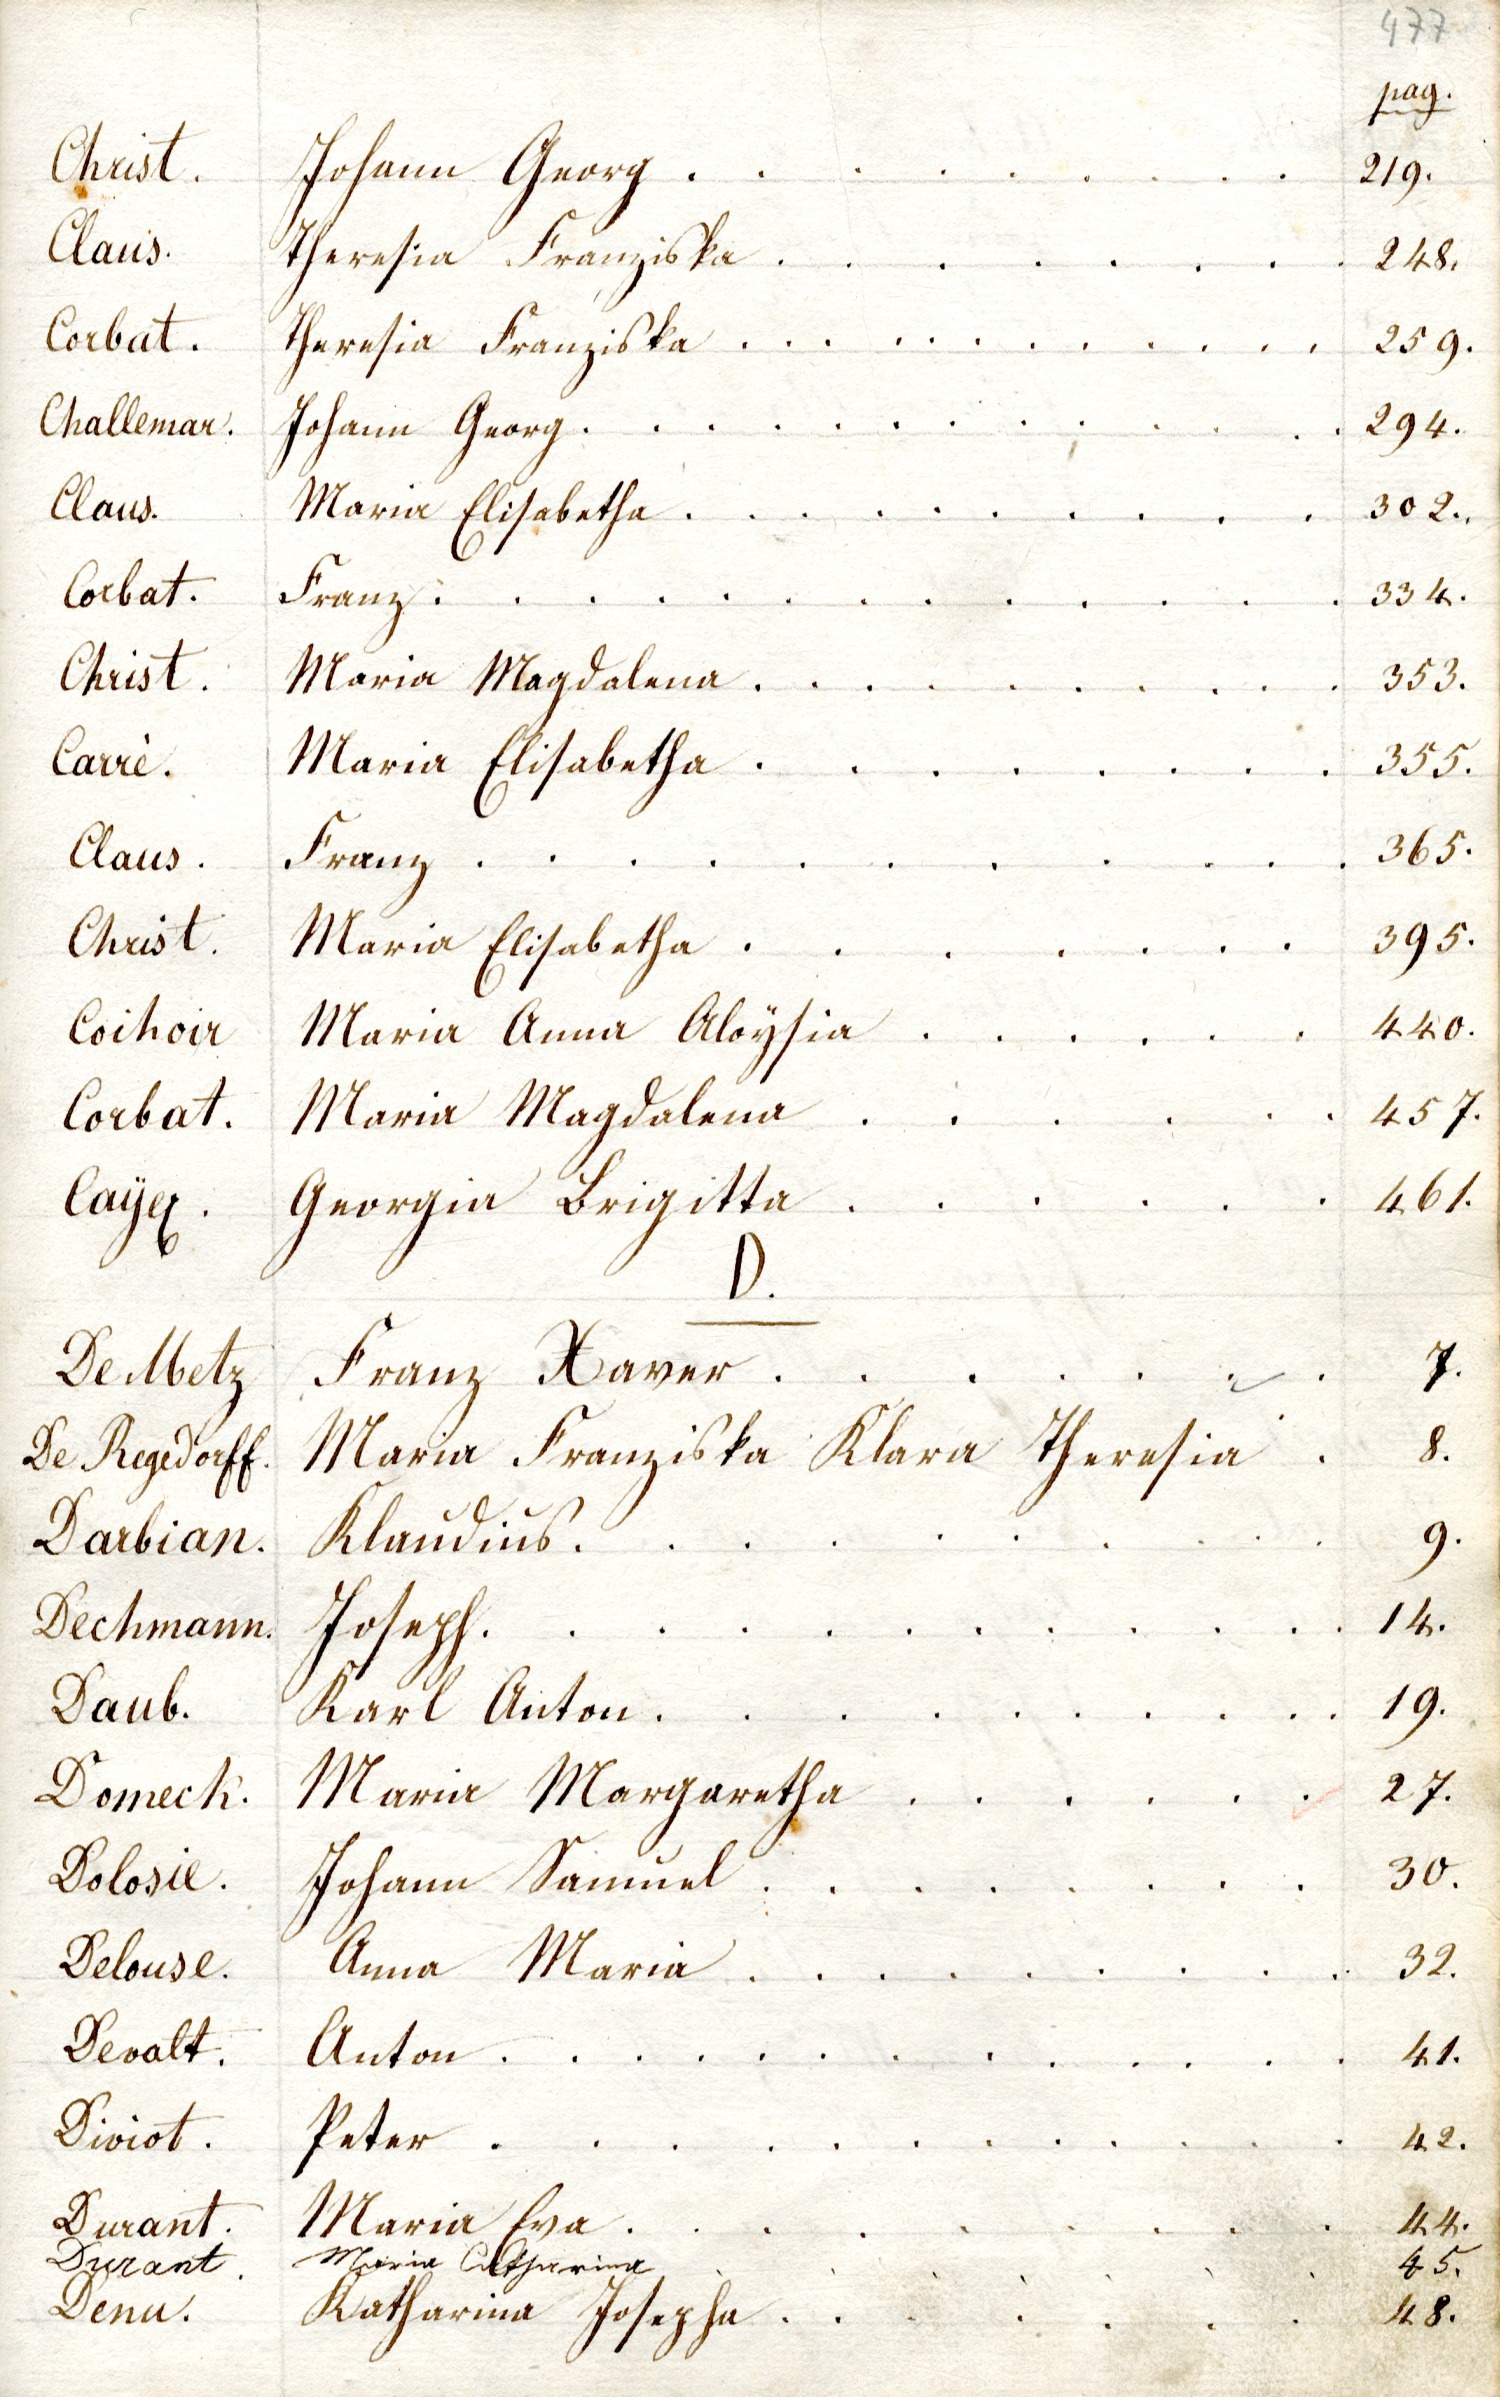 477
pag.
Christ. Johann Georg . . . . . . . . . 219.
Claus. Theresia Franziska . . . . . . . . 248.
Corbat. Theresia Franziska . . . . . . . . . . . 259.
Challemar. Johann Georg . . . . . . . . . . . 294.
Claus. Maria Elisabetha . . . . . . . . . 302.
Corbat. Franz . . . . . . . . . . . . . 334.
Christ. Maria Magdalena . . . . . . . . . 353.
Carrè. Maria Elisabetha . . . . . . . . 355.
Claus. Franz . . . . . . . . . . . 365.
Christ. Maria Elisabetha . . . . . . . 395.
Coihoir Maria Anna Aloÿsia . . . . . . 440.
Corbat. Maria Magdalena . . . . . . 457.
Caÿex. Georgia Brigitta . . . . . . 461.
D.
De Metz Franz Xaver . . . . . . . 7.
De Regedorff. Maria Franziska Klara Theresia . 8.
Darbian. Klaudius . . . . . . . . . 9.
Dechmann. Joseph . . . . . . . . . . . 14.
Daub. Karl Anton . . . . . . . . . . 19.
Domeck. Maria Margaretha . . . . . . 27.
Dolosie. Johann Samuel . . . . . . . . 30.
Delouse. Anna Maria . . . . . . . . . 32.
Devalt. Anton . . . . . . . . . . . . 41.
Diviot. Peter . . . . . . . . . . . 42.
Durant. Maria Eva . . . . . . . . . 44.
Durant. Maria Catharina . . . . . . . 45.
Denu. Katharina Josepha . . . . . . . 48.